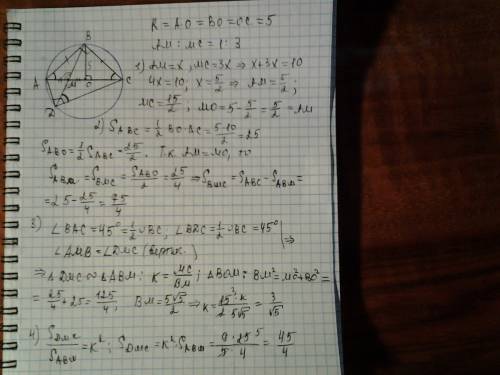 B
A
M
5
O
C
D
R = AO = BO = OC = 5
AM : MC = 1 : 3
1) AM = x, MC = 3x ⇒ x + 3x = 10
4x = 10; x = 5/2 ⇒ AM = 5/2;
MC = 15/2; MO = 5 - 5/2 = 5/2 = AM
2) S_ABC = 1/2 BO · AC = 5·10/2 = 25
S_ABO = 1/2 S_ABC = 25/2. Т.к. AM = MO, то
S_ABM = S_BMO = S_ABO/2 = 25/4 ⇒ S_BMC = S_ABC - S_ABM =
= 25 - 25/4 = 75/4
3) ∠BAC = 45° = 1/2 ∪BC, ∠BDC = 1/2 ∪BC = 45° | ⇒
∠AMB = ∠DMC (вертик.)
⇒ △DMC ∾ △ABM: K = MC/BM; △BOM: BM² = MO² + BO² =
= 25/4 + 25 = 125/4; BM = 5√5/2 ⇒ K = 15·2/2·5√5 = 3/√5
4) S_DMC/S_ABM = K²; S_DMC = K²·S_ABM = 9·25/5·4 = 45/4